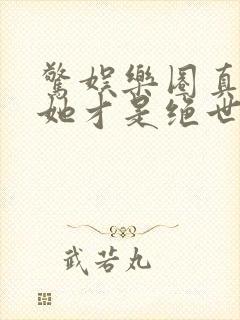 驚娱樂圈真
她才是绝世
武若丸